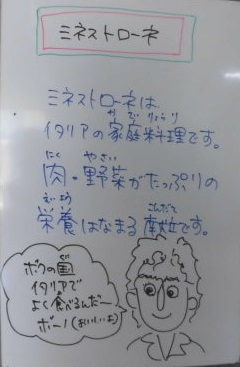 ミネストローネ
ミネストローネは
かていりょうり
イタリアの家庭料理です。
にく やさい
肉・野菜がたっぷりの
えいよう こんだて
栄養はなまる献立です。
ボクの国
イタリアで
よく食べるんだー
ボーノ(おいしいよ)